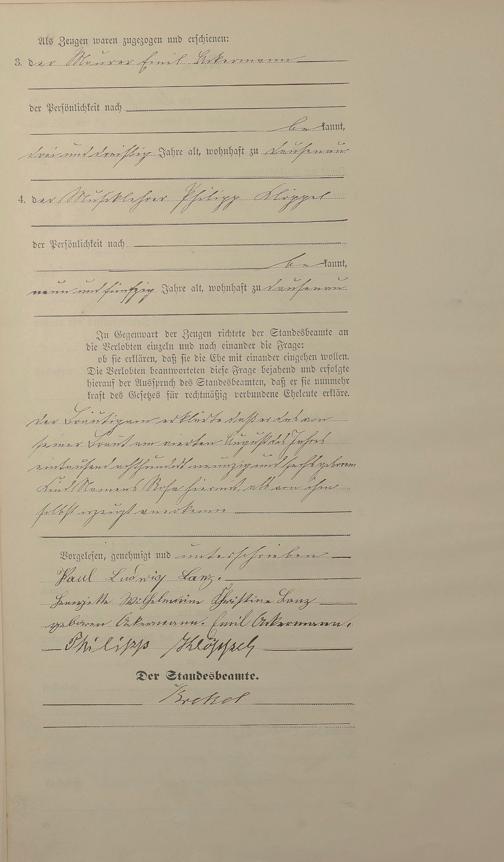 Als Zeugen waren zugezogen und erschienen:
3. der Maurer Emil Ackermann
der Persönlichkeit nach
be kannt,
drei und dreißig Jahre alt, wohnhaft zu Dausenau
4. der Musiklehrer Philipp Klöppel
der Persönlichkeit nach
be kannt,
neun und fünfzig Jahre alt, wohnhaft zu Dausenau
In Gegenwart der Zeugen richtete der Standesbeamte an
die Verlobten einzeln und nach einander die Frage:
ob sie erklären, daß sie die Ehe mit einander eingehen wollen.
Die Verlobten beantworteten diese Frage bejahend und erfolgte
hierauf der Ausspruch des Standesbeamten, daß er sie nunmehr
kraft des Gesetzes für rechtmäßig verbundene Eheleute erkläre.
Der Bräutigam erklärte daß er das von
seiner Braut am vierten August des Jahres
eintausend achthundert neunzig und sechs geborene
Kind Namens Rosa hiermit, als von ihm
selbst erzeugt anerkenne
Vorgelesen, genehmigt und unterschrieben
Paul Ludwig Lanz.
Henriette Wilhelmine Christine Lanz
geborene Ackermann. Emil Ackermann.
Philipp Klöppel
Der Standesbeamte.